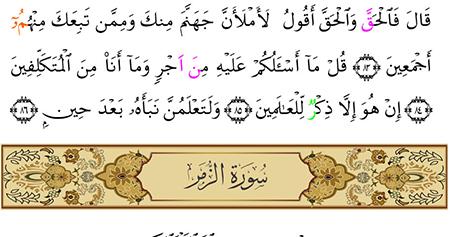 قَالَ فَالْحَقَّ وَالْحَقَّ أَقُولُ لَأَمْلَأَنَّ جَهَنَّمَ مِنكَ وَمِمَّن تَبِعَكَ مِنْهُمُۥٓ
أَجْمَعِينَ ٨٣ قُلْ مَآ أَسْـَٔلُكُمْ عَلَيْهِ مِنَ اَجْرٍ وَمَآ أَنَا۠ مِنَ اَ۬لْمُتَكَلِّفِينَ
٨٤ إِنْ هُوَ إِلَّا ذِكْرٌ لِّلْعَٰلَمِينَ ٨٥ وَلَتَعْلَمُنَّ نَبَأَهُۥ بَعْدَ حِينٍۭ ٨٦
سُورَةُ الزُّمَرِ